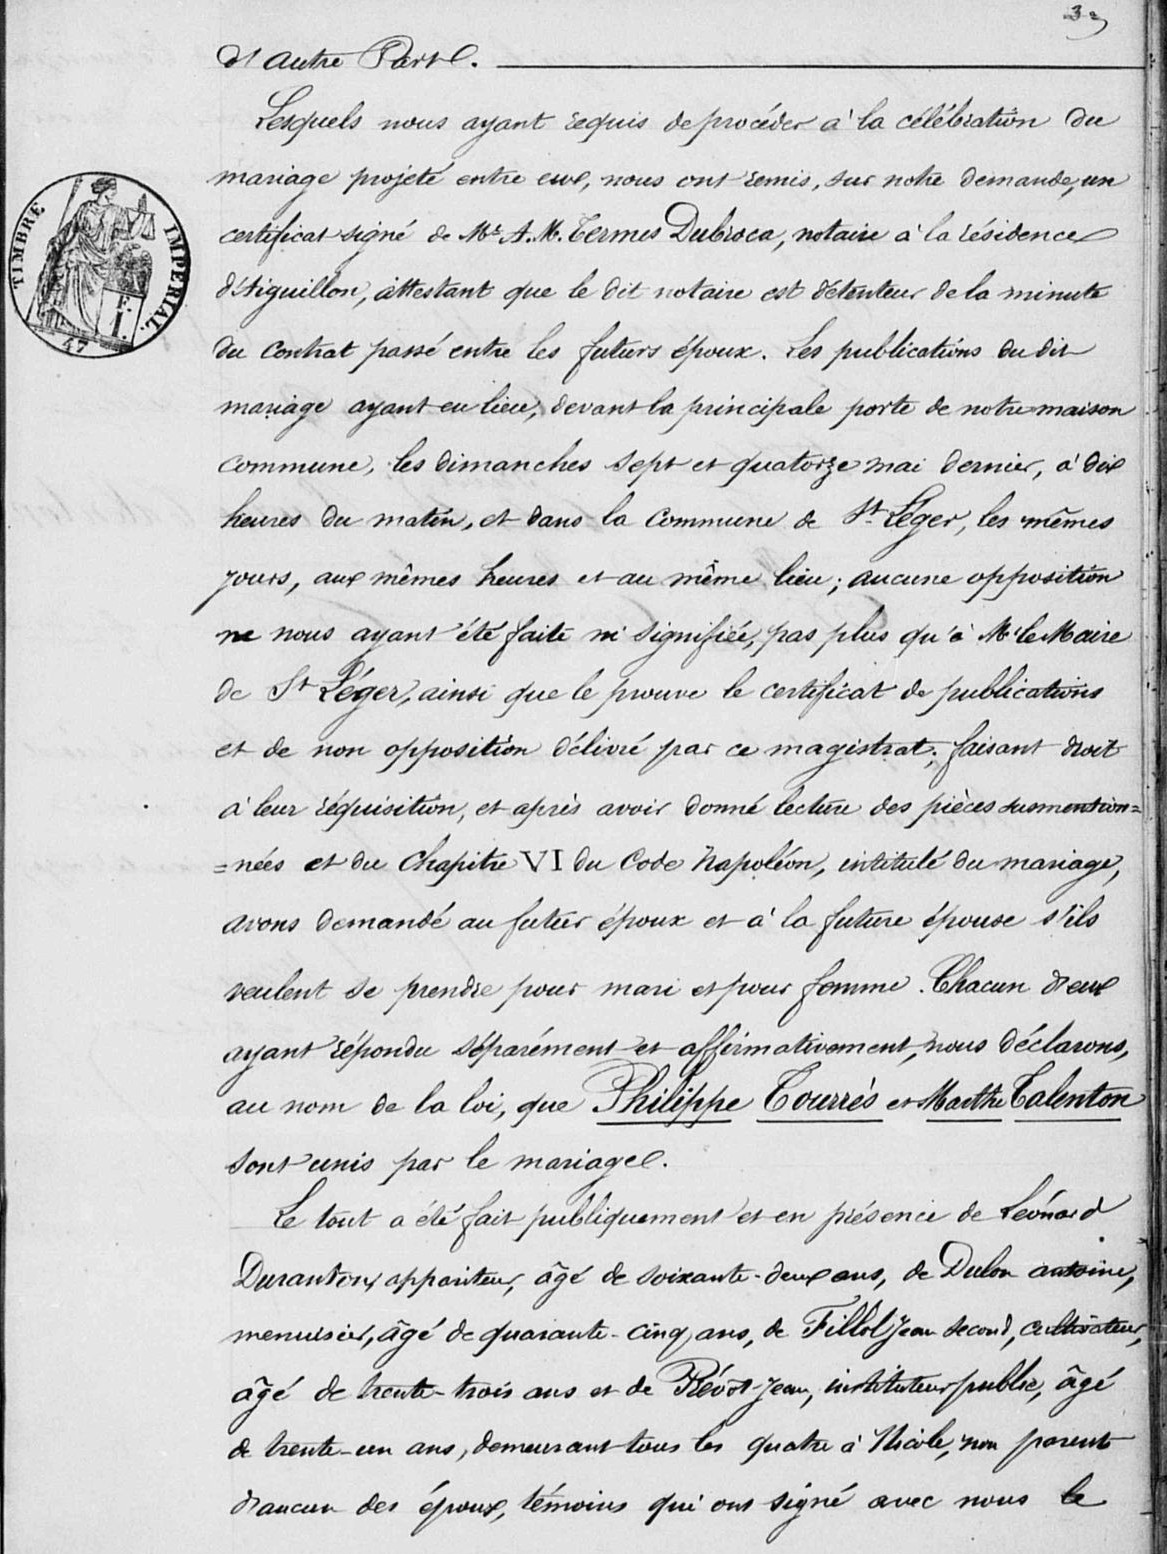 33
d'autre Part.
Lesquels nous ayant requis de procéder à la célébration du
mariage projeté entre eux, nous ont remis, sur notre demande, un
certificat signé de Mr. A. M. Termes Dubroca, notaire à la résidence
d'Aiguillon, attestant que le dit notaire est détenteur de la minute
du contrat passé entre les futurs époux. Les publications du dit
mariage ayant eu lieu, devant la principale porte de notre maison
commune, les dimanches sept et quatorze mai dernier, à dix
heures du matin, et dans la commune de St. Léger, les mêmes
jours, aux mêmes heures et au même lieu; aucune opposition
ne nous ayant été faite ni signifiée, pas plus qu'à Mr le Maire
de St Léger, ainsi que le prouve le certificat de publications
et de non opposition délivré par ce magistrat; faisant droit
à leur réquisition, et après avoir donné lecture des pièces susmention=
=nées et du Chapitre VI du Code Napoléon, intitulé du mariage,
avons demandé au futur époux et à la future épouse s'ils
veulent se prendre pour mari et pour femme. Chacun d'eux
ayant répondu séparément et affirmativement, nous déclarons,
au nom de la loi, que Philippe Tourrès et Marthe Talenton
sont unis par le mariage.
Le tout a été fait publiquement et en présence de Léonard
Duranton, appariteur, âgé de soixante-deux ans, de Dulon antoine,
menuisier, âgé de quarante-cinq ans, de Fillol Jean second, cultivateur,
âgé de trente-trois ans et de Prévôt Jean, instituteur public, âgé
de trente-un ans, demeurant tous les quatre à Nicole, non parents
d'aucun des époux, témoins qui ont signé avec nous le
TIMBRE IMPERIAL.
F.
1.
47